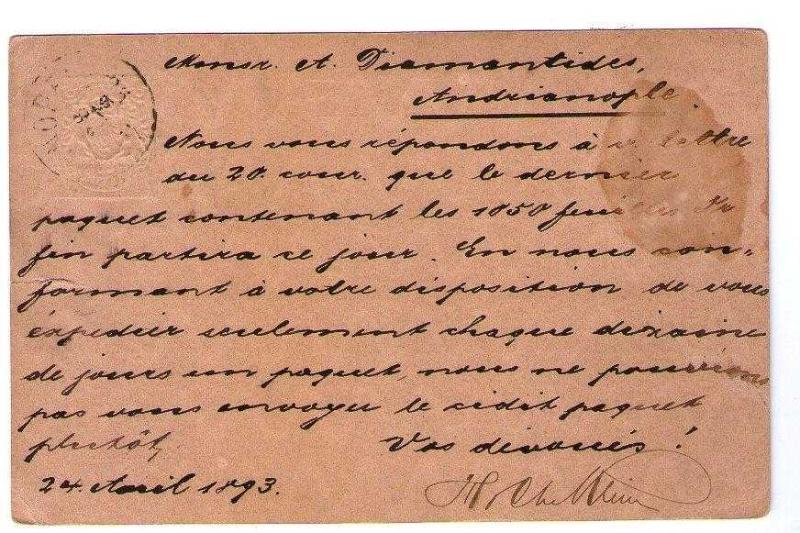 Monsr. A. Diamantides,
Andrianople.
Nous vous répondons à v. lettre
du 20. cour. que le dernier
paquet contenant les 1050 feuilles d'or
fin partira ce jour. En nous con-
formant à votre disposition de vous
éxpedier seulement chaque dizaine
de jours un paquet, nous ne pourrions
pas vous envoyer le cédit paquet
plutôt.
Vos dévoués!
24. Avril 1893.